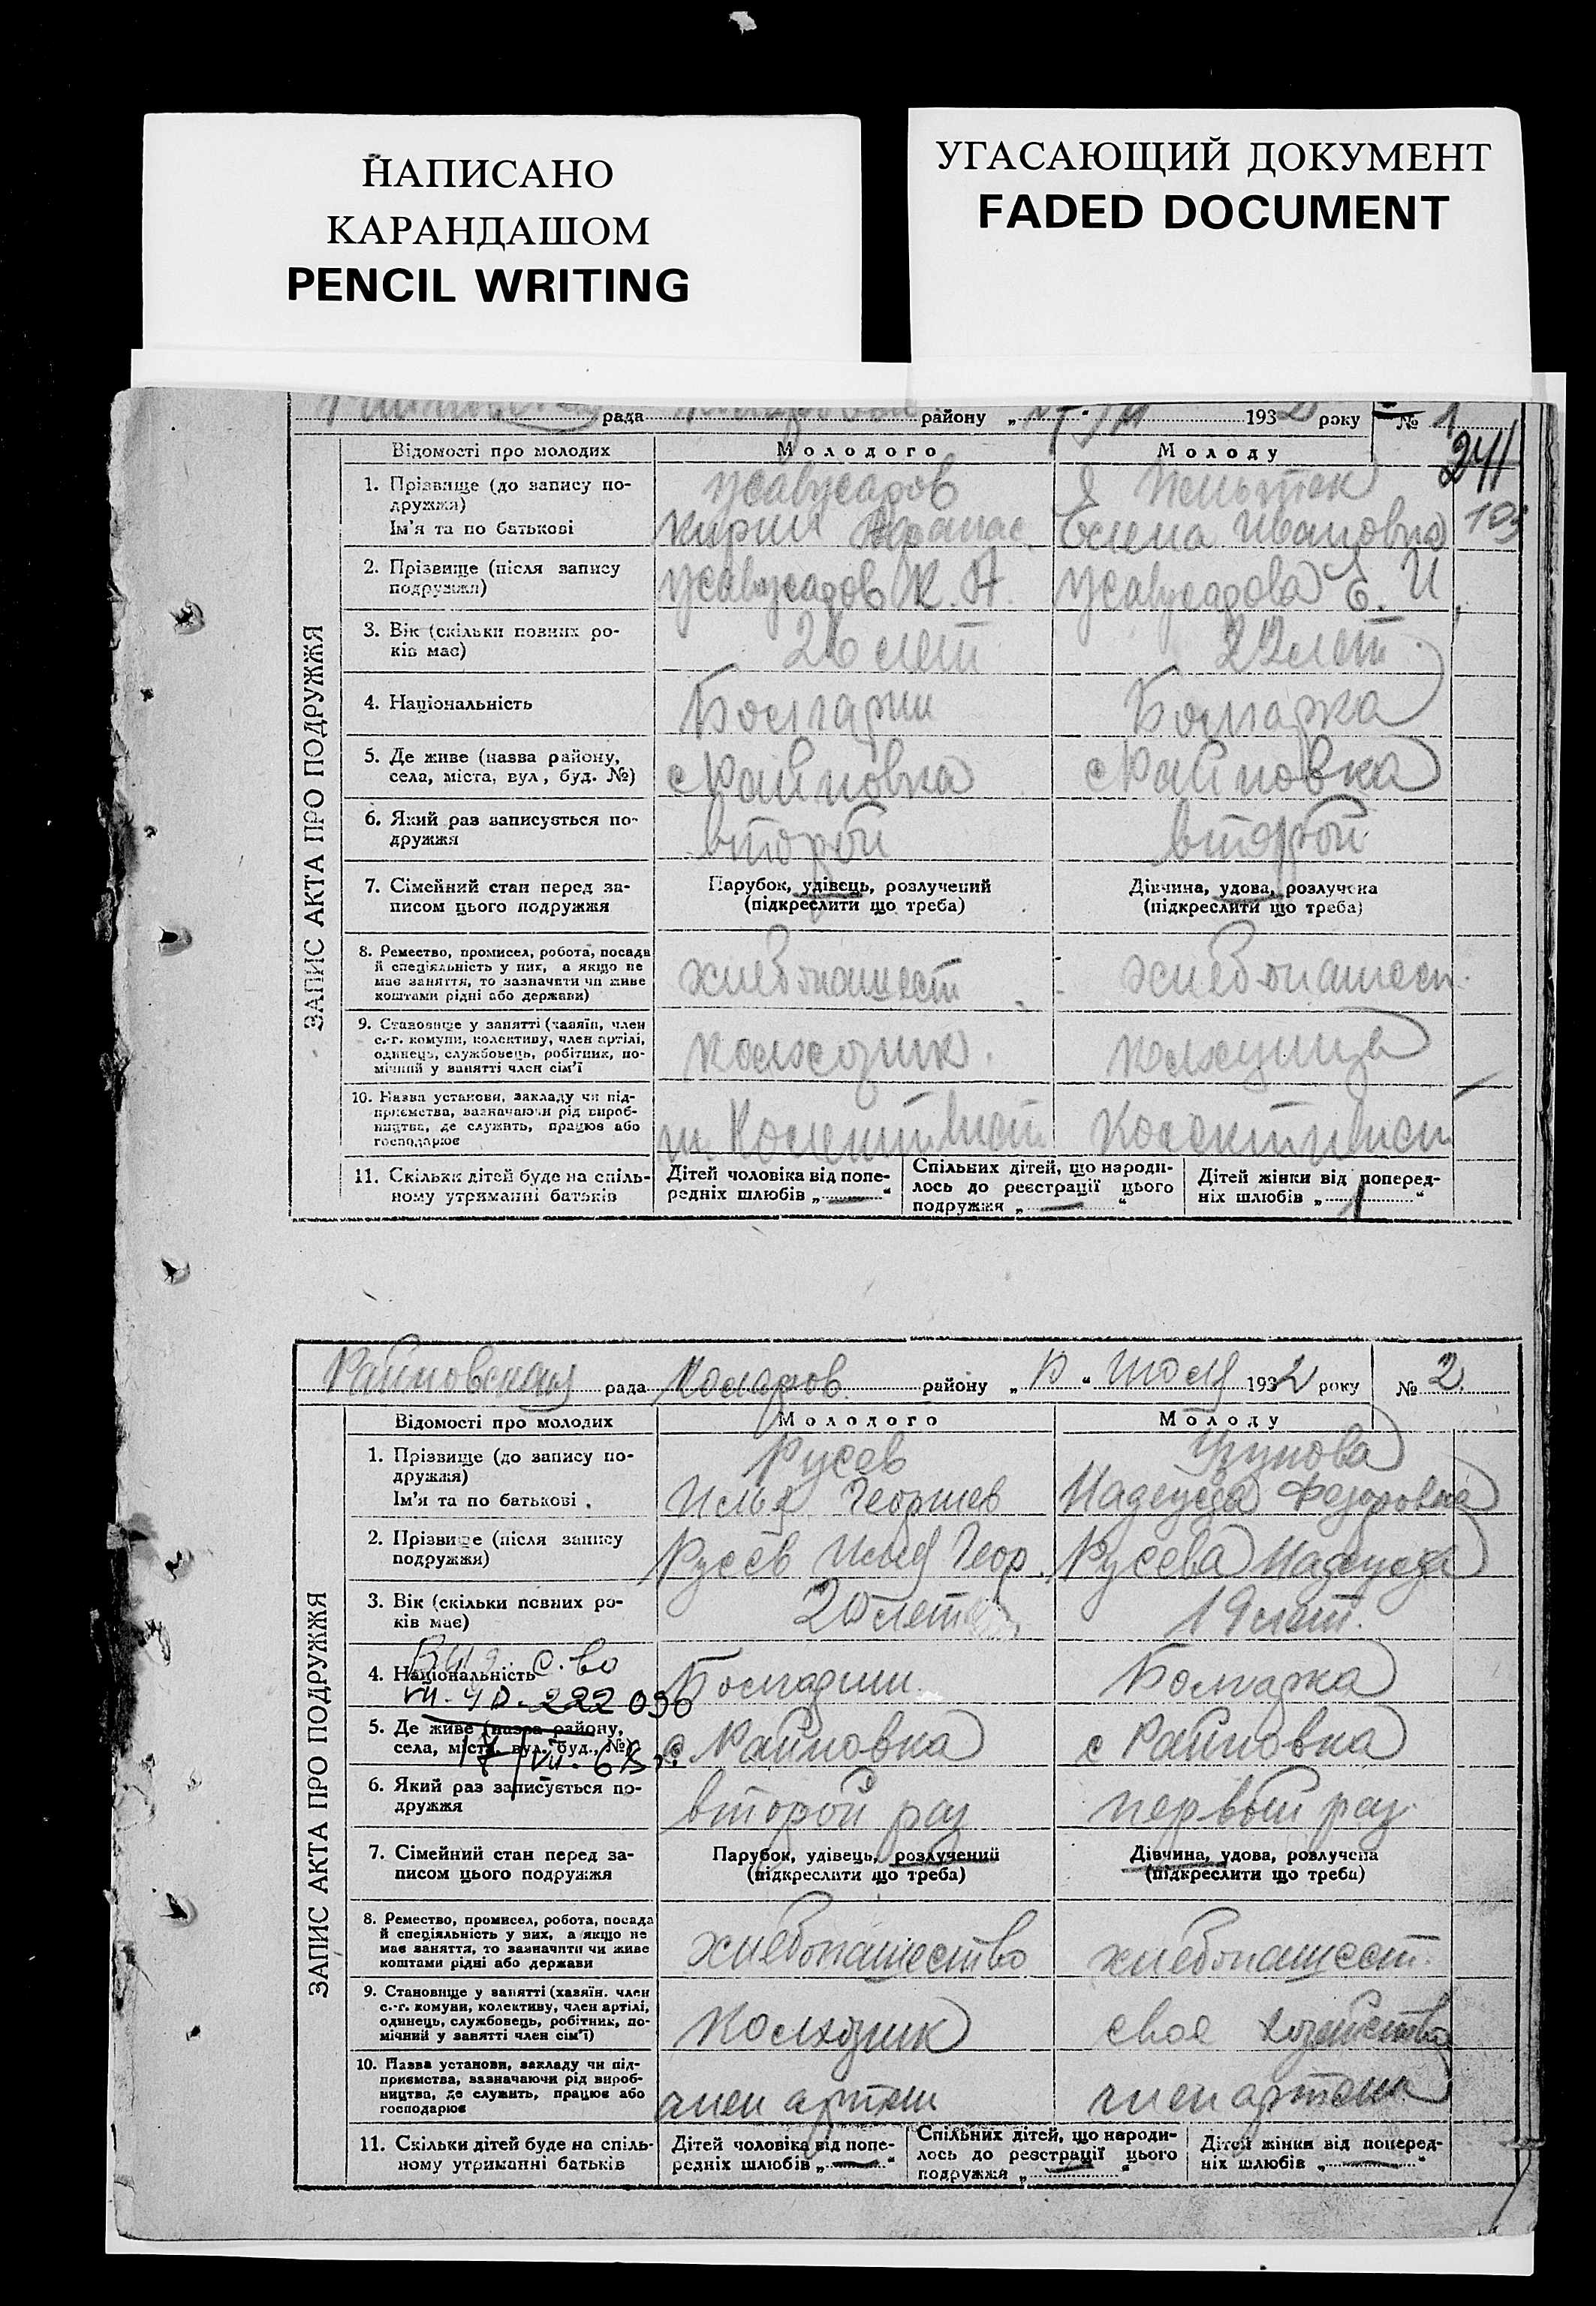 НАПИСАНО
КАРАНДАШОМ
PENCIL WRITING
УГАСАЮЩИЙ ДОКУМЕНТ
FADED DOCUMENT
рада району „ 193 року № 1
241
ЗАПИС АКТА ПРО ПОДРУЖЖЯ
Відомості про молодих Молодого Молоду
1. Прізвище (до запису по-
дружжя)
Ім'я та по батькові Кирил Афанас. Елена Ивановна
2. Прізвище (після запису
подружжя) К. А. Е. И
3. Вік (скільки повних ро-
ків має) 26 лет 22 лет
4. Національність Болгарин Болгарка
5. Де живе (назва району,
села, міста, вул., буд. №) с Райновка с Райновка
6. Який раз записується по-
дружжя второй второй
7. Сімейний стан перед за-
писом цього подружжя
Парубок, удівець, розлучений
(підкреслити що треба)
Дівчина, удова, розлучена
(підкреслити що треба)
8. Ремество, промисел, робота, посада
й спеціяльність у них, а якщо не
має заняття, то зазначити чи живе
коштами рідні або держави) хлебопашест хлебопашест.
9. Становище у занятті (хазяїн, член
с.-г. комуни, колективу, член артілі,
одинець, службовець, робітник, по-
мічний у занятті член сім'ї колхозник.
10. Назва установи, закладу чи під-
приємства, зазначаючи рід вироб-
ництва, де служить, працює або
господарює
11. Скільки дітей буде на спіль-
ному утриманні батьків
Дітей чоловіка від попе-
редніх шлюбів „ — “
Спільних дітей, що народи-
лось до реєстрації цього
подружжя „ — “
Дітей жінки від поперед-
ніх шлюбів „ 1 “
Райновская рада Коларов. району „ “ Июля 1932 року № 2.
ЗАПИС АКТА ПРО ПОДРУЖЖЯ
Відомості про молодих Молодого Молоду
1. Прізвище (до запису по-
дружжя) Русев
Ім'я та по батькові Илья Георгиев Надежда Федоровна
2. Прізвище (після запису
подружжя) Русев Илья Геор. Русева Надежда
3. Вік (скільки повних ро-
ків має) 20 лет 19 лет.
4. Національність Болгарин Болгарка
с-во
222 090
5. Де живе (назва району,
села, міста, вул., буд., №) с Райновка с Райновка
6. Який раз записується по-
дружжя второй раз первый раз.
7. Сімейний стан перед за-
писом цього подружжя
Парубок, удівець, розлучений
(підкреслити що треба)
Дівчина, удова, розлучена
(підкреслити що треба)
8. Ремество, промисел, робота, посада
й спеціяльність у них, а якщо не
має заняття, то зазначити чи живе
коштами рідні або держави хлебопашество хлебопашест.
9. Становище у занятті (хазяїн, член
с.-г. комуни, колективу, член артілі,
одинець, службовець, робітник, по-
мічний у занятті член сім'ї) Колхозник свое хозяйство
10. Назва установи, закладу чи під-
приємства, зазначаючи рід вироб-
ництва, де служить, працює або
господарює член артели член артели
11. Скільки дітей буде на спіль-
ному утриманні батьків
Дітей чоловіка від попе-
редніх шлюбів „ — “
Спільних дітей, що народи-
лось до реєстрації цього
подружжя „ — “
Дітей жінки від поперед-
ніх шлюбів „ — “